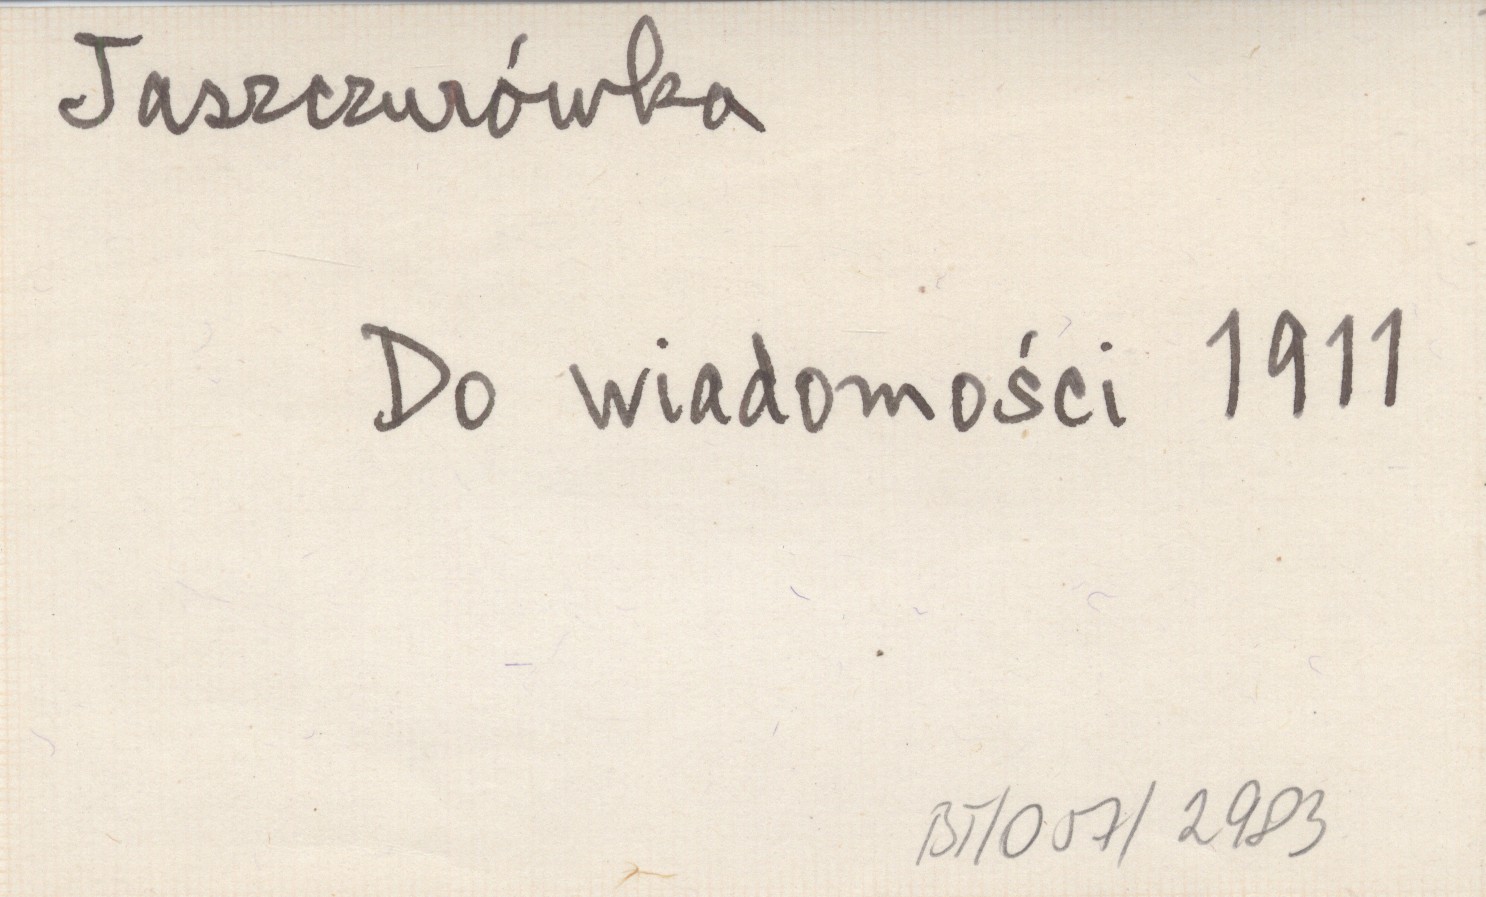 Jaszczurówka
Do wiadomości 1911
BT/057/2983